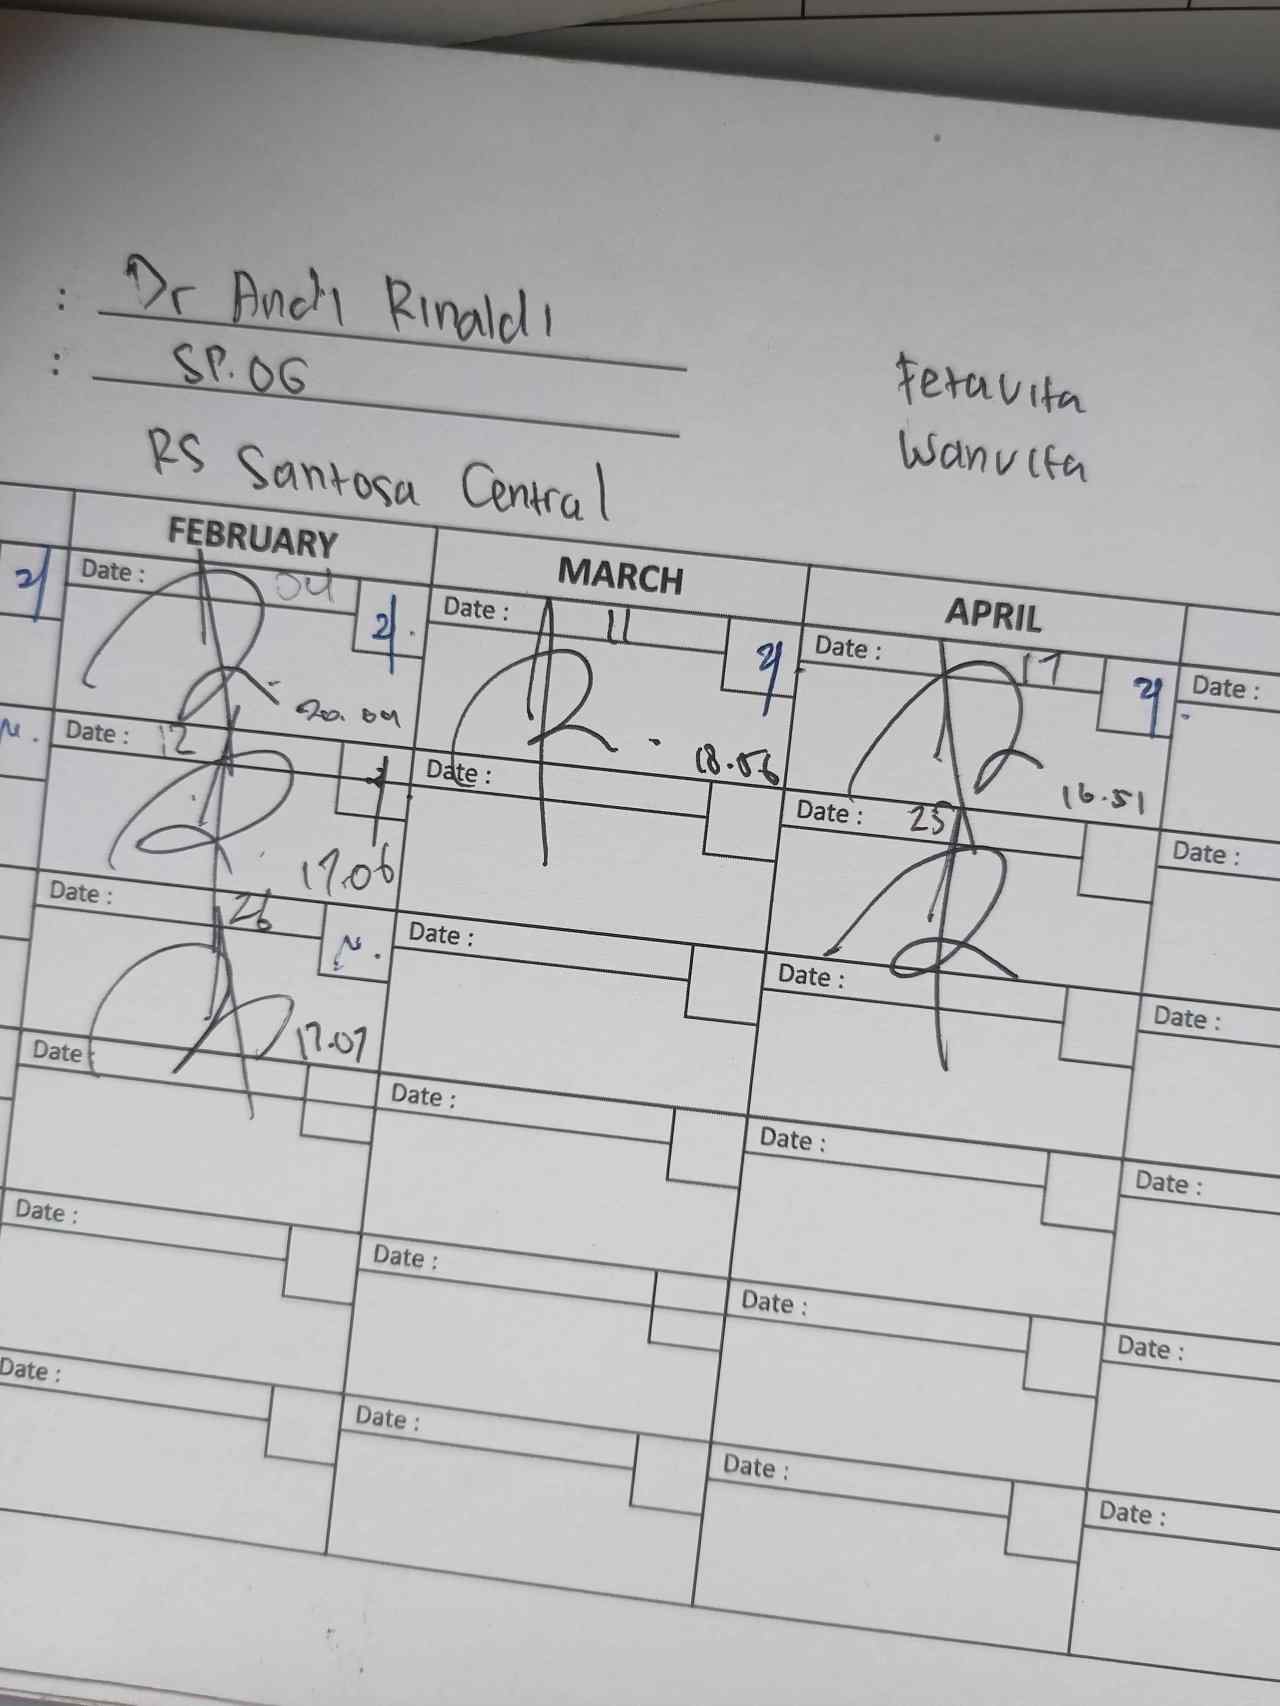 : Dr Andi Rinaldi
: SP.OG
Fetavita
Wanvita
RS Santosa Central
FEBRUARY MARCH APRIL
Date : 04 Date : 11 Date : 17 Date :
20.04 18.56 16.51
Date : 12 Date : Date : 25 Date :
17.06
Date : 26 Date : Date : Date :
17.07
Date : Date : Date : Date :
Date : Date : Date : Date :
Date : Date : Date : Date :